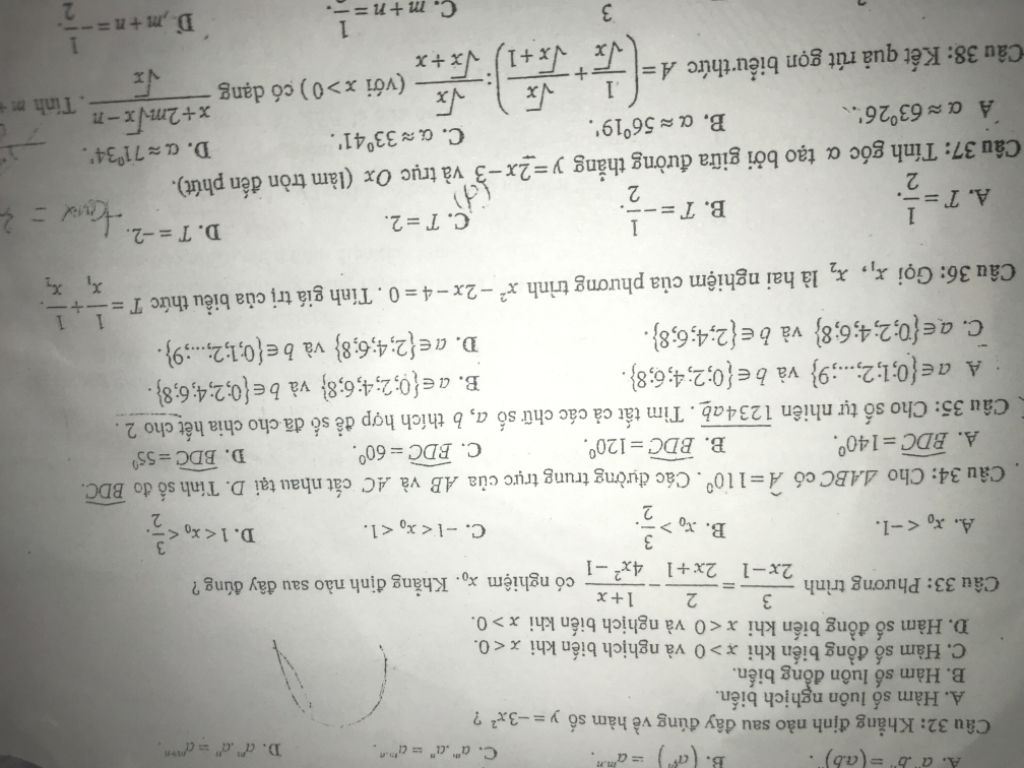 A. aⁿbⁿ = (ab)ⁿ. B. (aᵐ)ⁿ = aᵐ·ⁿ. C. aⁿ.aᵐ = aᵐ·ⁿ. D. aᵐ.aⁿ = aᵐ⁺ⁿ.
Câu 32: Khẳng định nào sau đây đúng về hàm số y = −3x² ?
A. Hàm số luôn nghịch biến.
B. Hàm số luôn đồng biến.
C. Hàm số đồng biến khi x > 0 và nghịch biến khi x < 0.
D. Hàm số đồng biến khi x < 0 và nghịch biến khi x > 0.
Câu 33: Phương trình 3/(2x−1) = 2/(2x+1) − (1+x)/(4x²−1) có nghiệm x₀. Khẳng định nào sau đây đúng ?
A. x₀ < −1. B. x₀ > 3/2. C. −1 < x₀ < 1. D. 1 < x₀ < 3/2.
Câu 34: Cho ΔABC có Â = 110⁰. Các đường trung trực của AB và AC cắt nhau tại D. Tính số đo BDC.
A. BDC = 140⁰. B. BDC = 120⁰. C. BDC = 60⁰. D. BDC = 55⁰
Câu 35: Cho số tự nhiên 1234ab. Tìm tất cả các chữ số a, b thích hợp để số đã cho chia hết cho 2.
A a ∈ {0;1;2;...;9} và b ∈ {0;2;4;6;8}. B. a ∈ {0;2;4;6;8} và b ∈ {0;2;4;6;8}.
C. a ∈ {0;2;4;6;8} và b ∈ {2;4;6;8}. D. a ∈ {2;4;6;8} và b ∈ {0;1;2;...;9}.
Câu 36: Gọi x₁, x₂ là hai nghiệm của phương trình x² − 2x − 4 = 0. Tính giá trị của biểu thức T = 1/x₁ + 1/x₂.
A. T = 1/2. B. T = −1/2. C. T = 2. D. T = −2.
Câu 37: Tính góc α tạo bởi giữa đường thẳng y = 2x − 3 và trục Ox (làm tròn đến phút).
(d)
A α ≈ 63⁰26'. B. α ≈ 56⁰19'. C. α ≈ 33⁰41'. D. α ≈ 71⁰34'.
Câu 38: Kết quả rút gọn biểu thức A = (1/√x + √x/(√x+1)) : √x/(√x+x) (với x > 0) có dạng (x+2m√x−n)/√x. Tính m +
3 C. m + n = 1/2. D. m + n = −1/2.